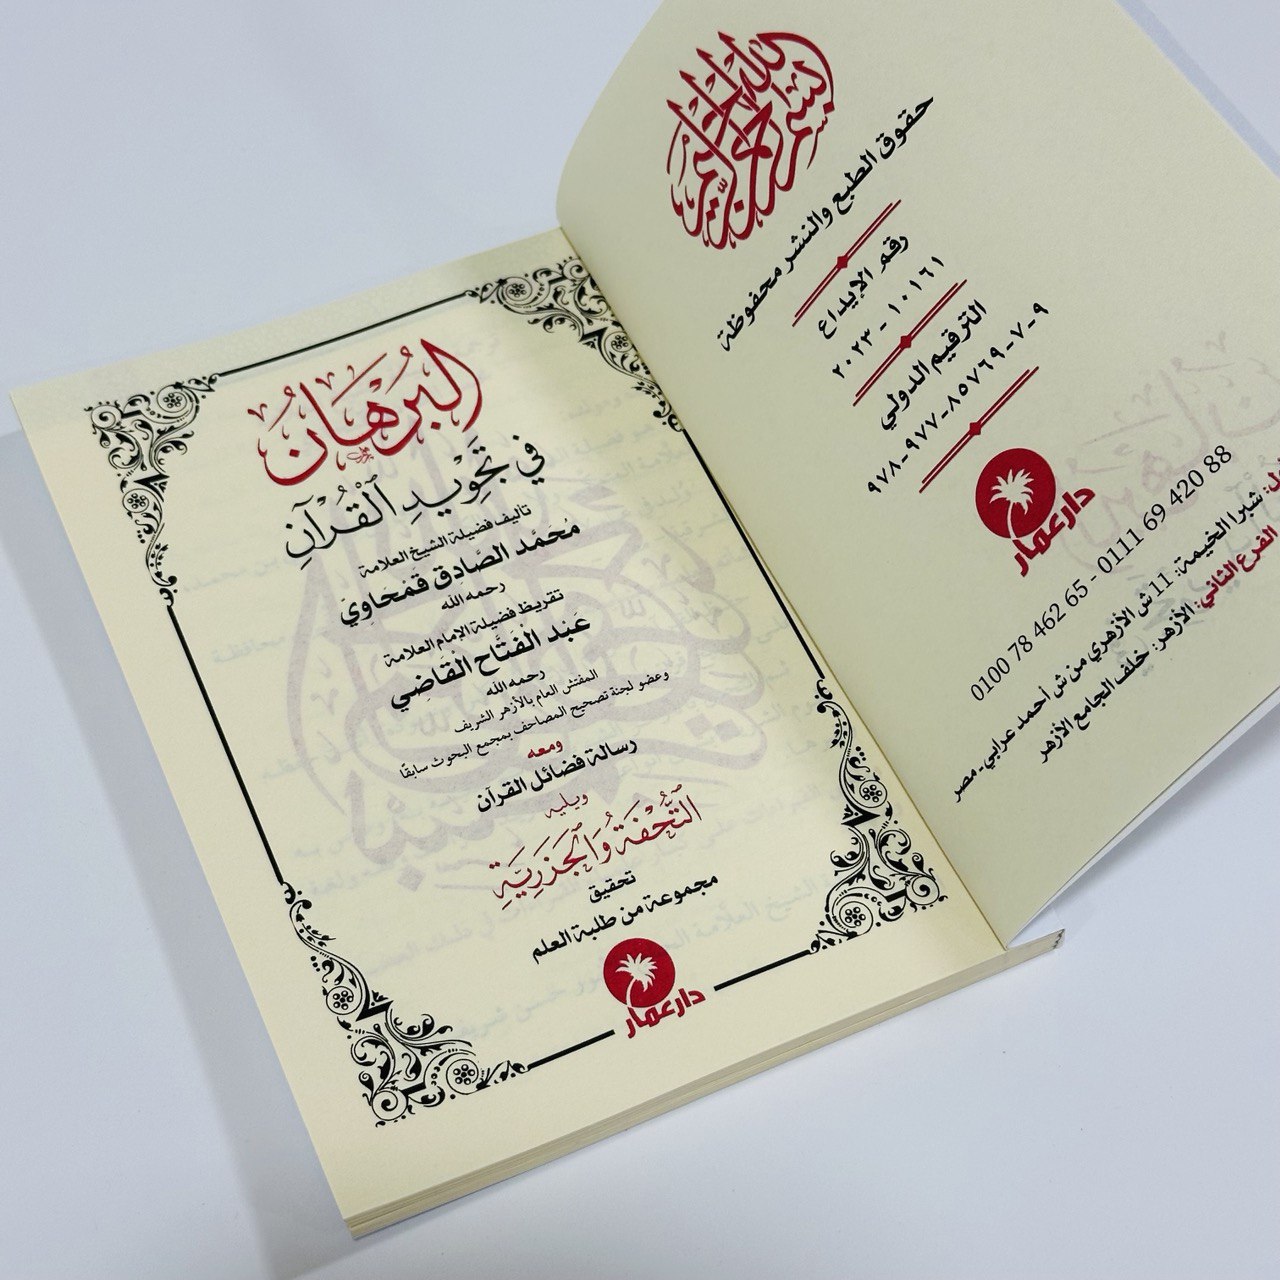 بسم الله الرحمن الرحيم
حقوق الطبع والنشر محفوظة
رقم الإيداع
١٠١٦١ - ٢٠٢٣
الترقيم الدولي
٩٧٨-٩٧٧-٨٥٧٦٩-٧-٩
دار عمار
0100 78 462 65 - 0111 69 420 88
شبرا الخيمة: 11 ش الأزهري من ش أحمد عرابي - مصر
الفرع الثاني: الأزهر: خلف الجامع الأزهر
البُرْهَانُ
في تَجْوِيدِ الْقُرْآنِ
تأليف فضيلة الشيخ العلامة
مُحَمَّد الصَّادِق قَمْحَاوِيّ
رحمه الله
تقريظ فضيلة الإمام العلامة
عَبْد الْفَتَّاح الْقَاضِي
رحمه الله
المفتش العام بالأزهر الشريف
وعضو لجنة تصحيح المصاحف بمجمع البحوث سابقًا
ومعه
رسالة فضائل القرآن
ويليه
التُّحْفَةُ وَالْجَزَرِيَّةُ
تحقيق
مجموعة من طلبة العلم
دار عمار